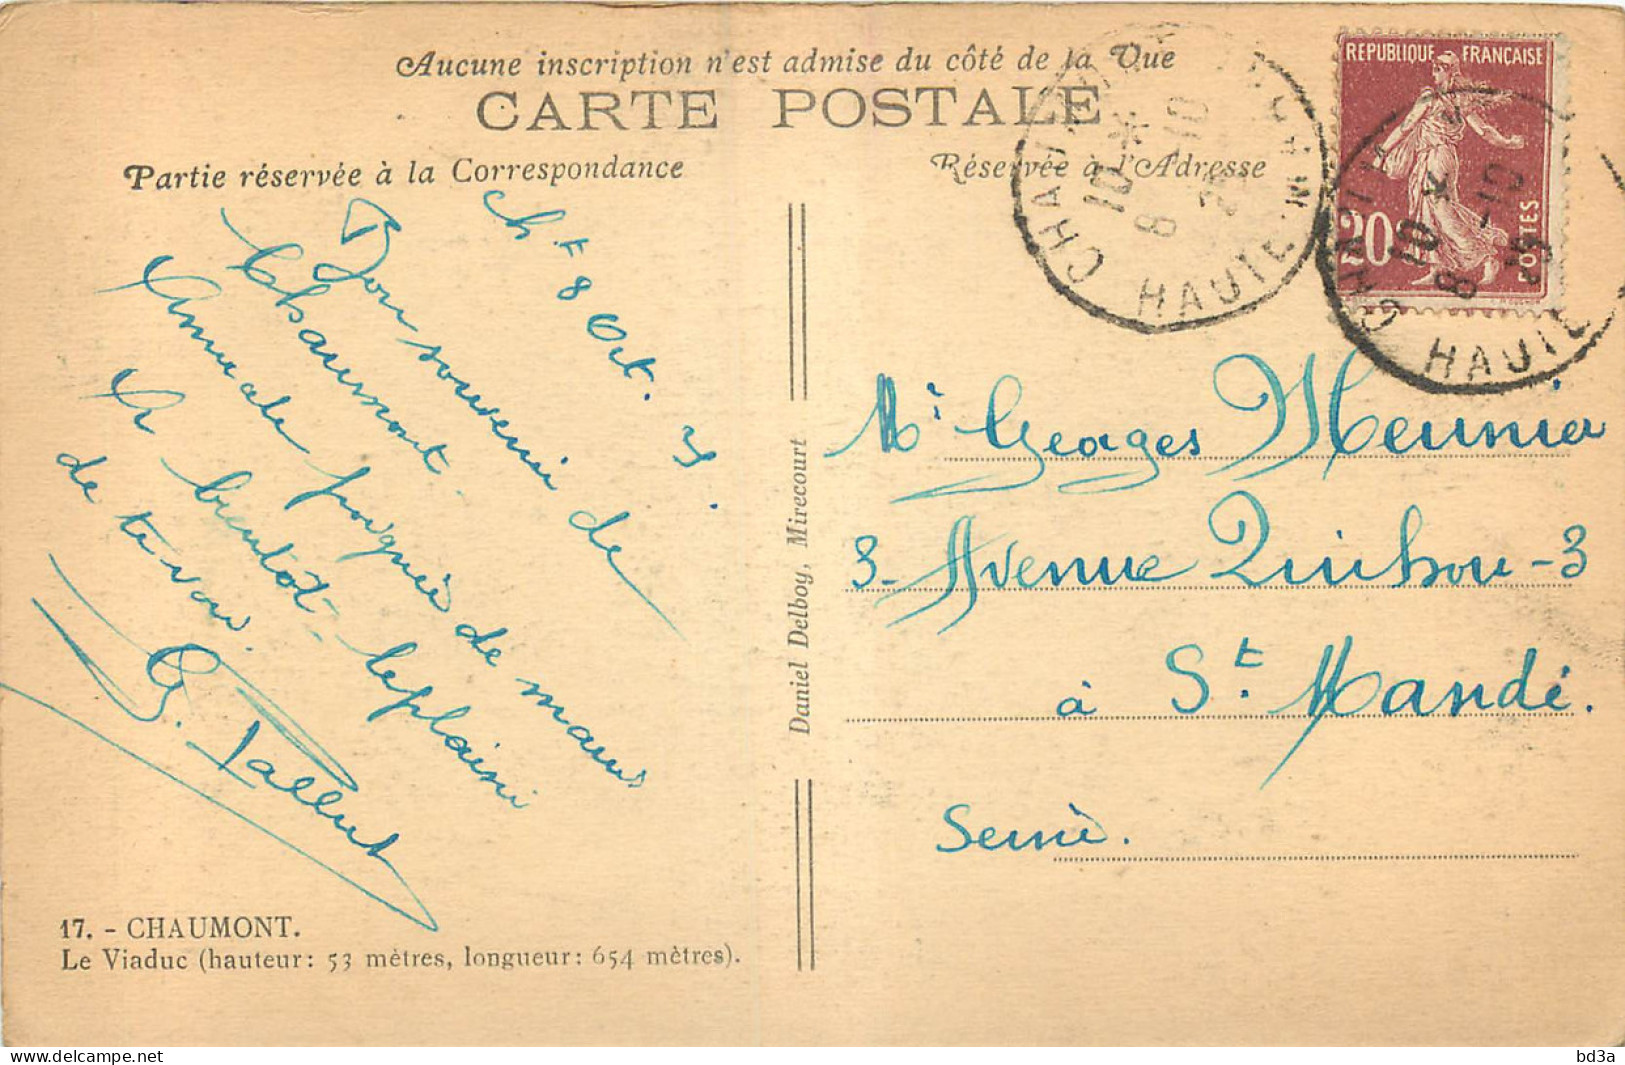 Aucune inscription n'est admise du côté de la Vue
CARTE POSTALE
Partie réservée à la Correspondance
Réservée à l'Adresse
REPUBLIQUE FRANÇAISE
20c
POSTES
CHAUMONT
HAUTE-MARNE
10 *
8 -10
25
CHAUM
HAUTE
10 *
8 -10
25
Ch t 8 Oct. 25.
Bon souvenir de
Chaumont.
Amicale poignée de mains
A bientôt le plaisir
de te voir.
G. Tallut
Mr Georges Meunier
3 - Avenue Quihou - 3
à St. Mandé.
Seine.
Daniel Delboy, Mirecourt
17. - CHAUMONT.
Le Viaduc (hauteur: 53 mètres, longueur: 654 mètres).
www.delcampe.net
bd3a